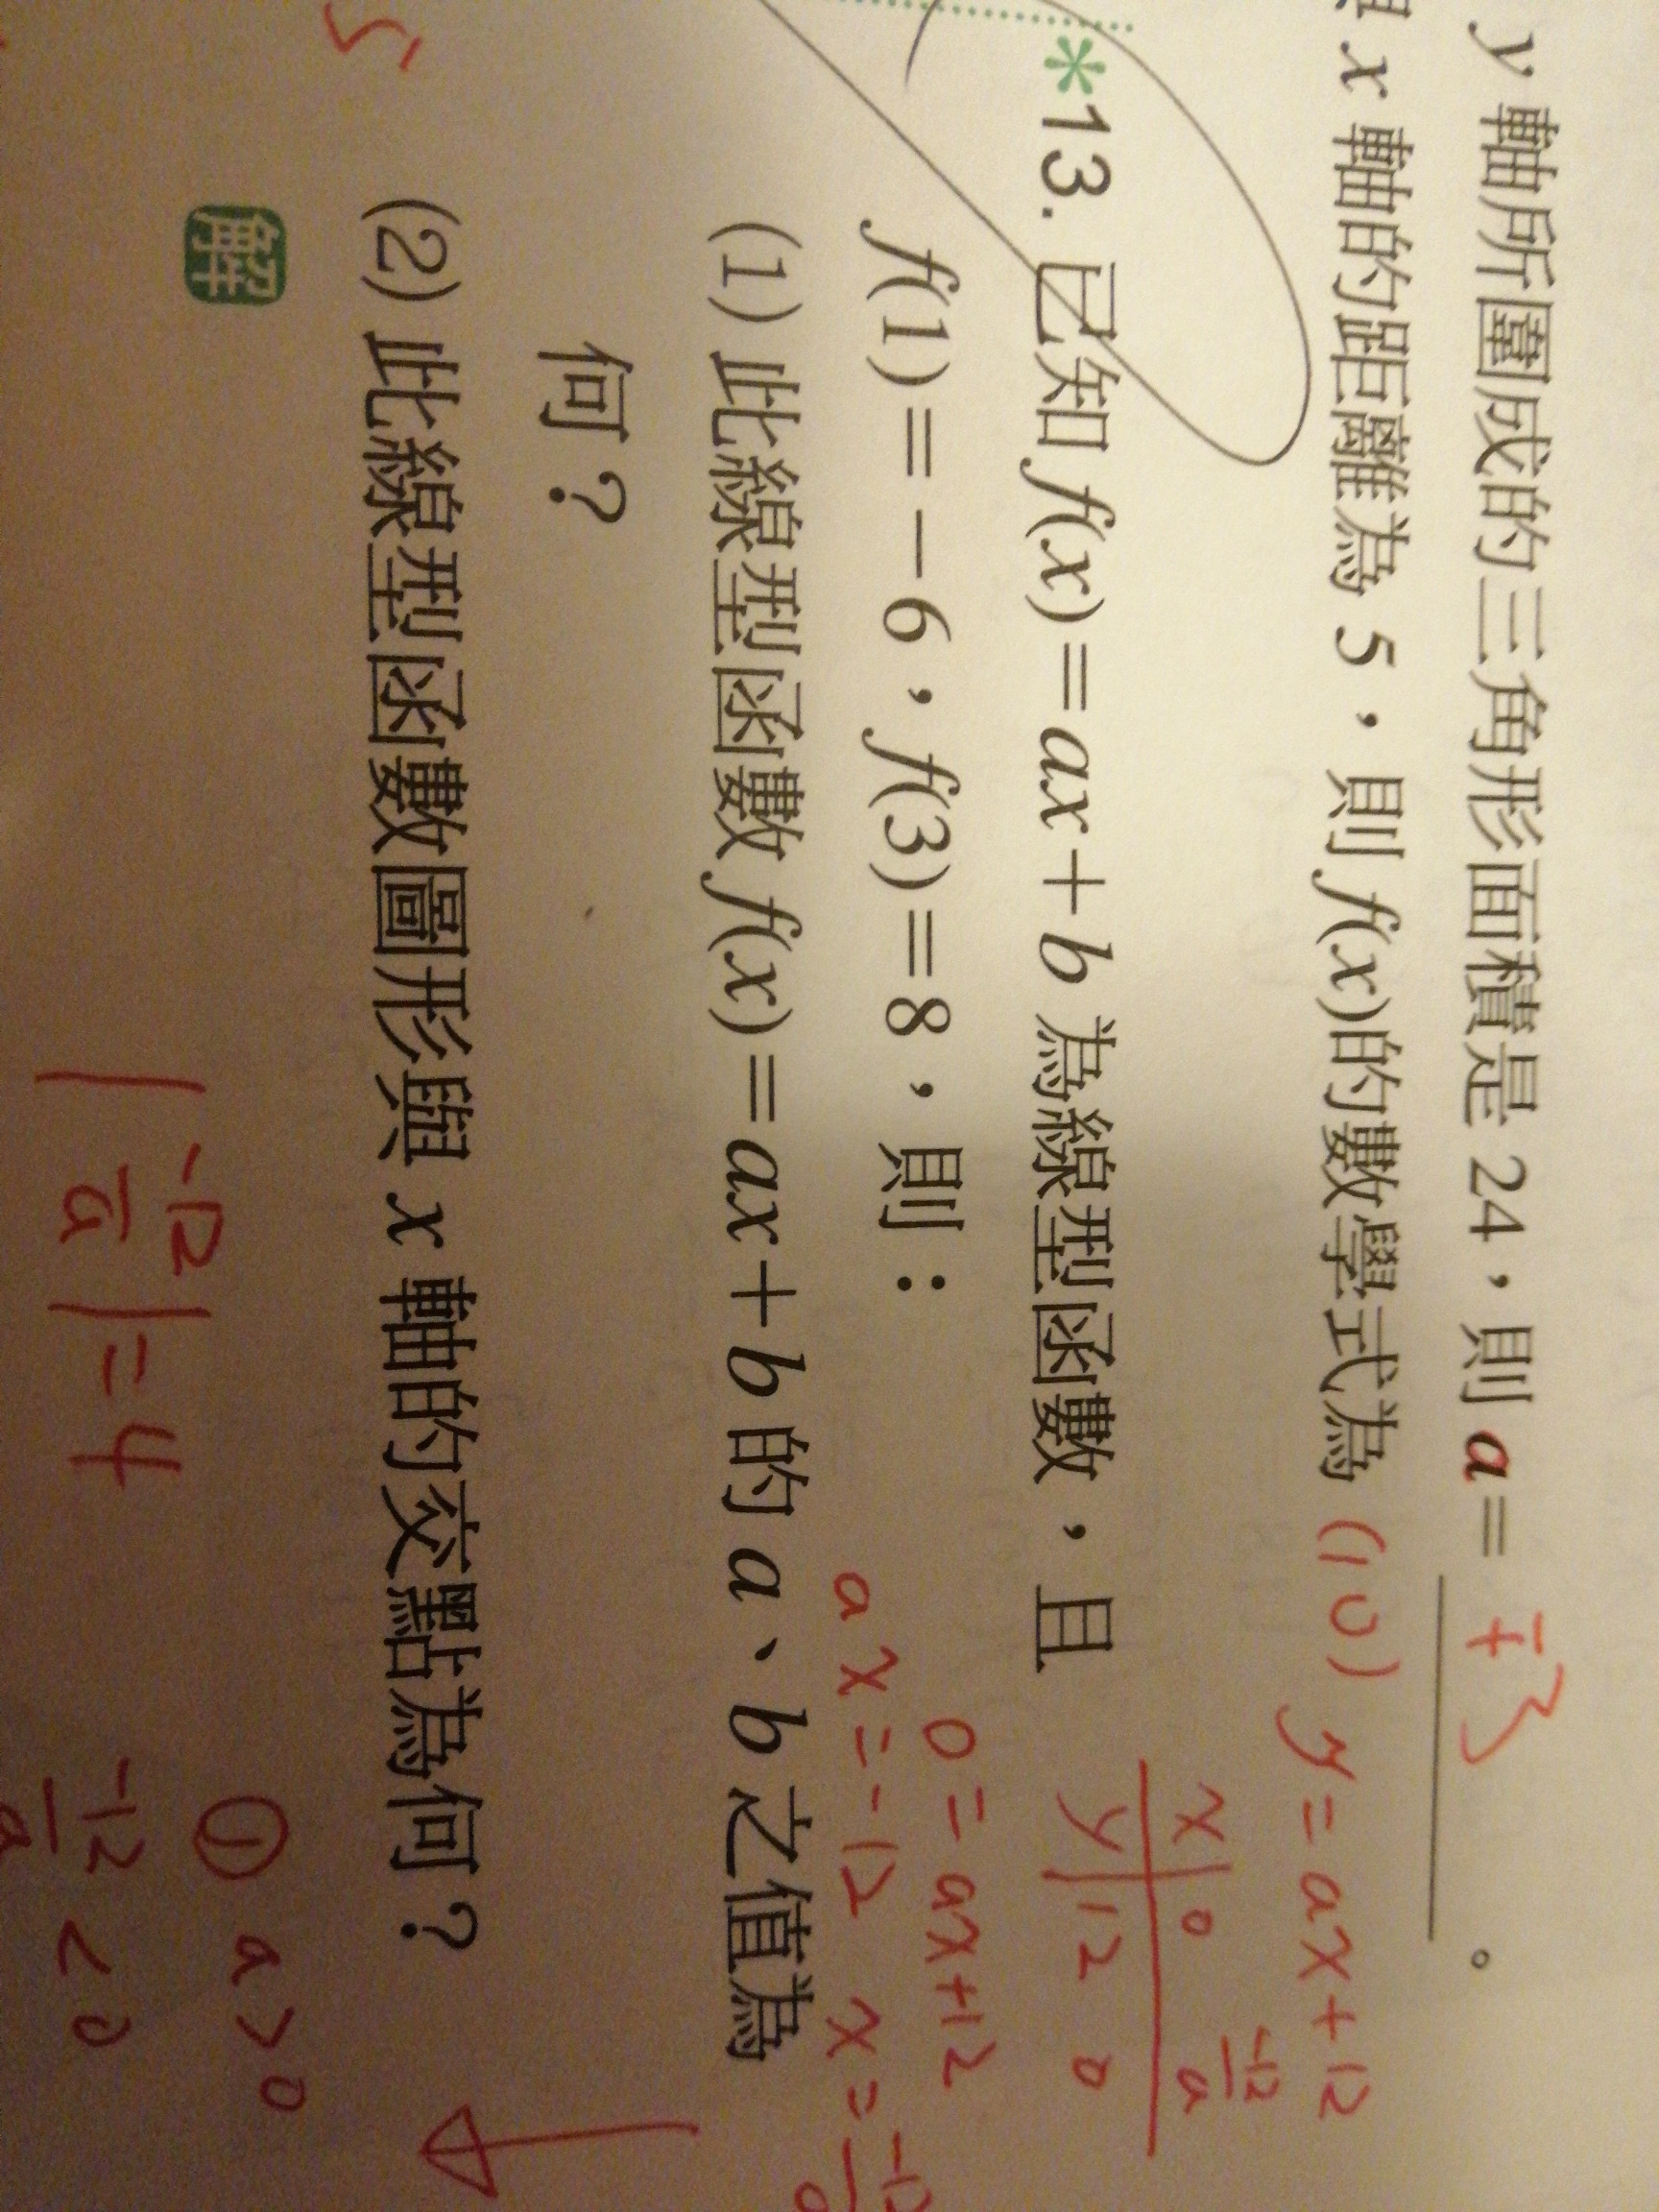 y 軸所圍成的三角形面積是 24，則 a = ±3 。
x 軸的距離為 5，則 f(x)的數學式為 (10) y = ax + 12
x 0 -12/a
y 12 0
*13. 已知 f(x)=ax+b 為線型函數，且
0 = ax+12
f(1)=-6，f(3)=8，則：
ax = -12 x =
(1) 此線型函數 f(x)=ax+b 的 a、b 之值為
何？
(2) 此線型函數圖形與 x 軸的交點為何？
解
① a>0
|-12/a| = 4
-12/a < 0